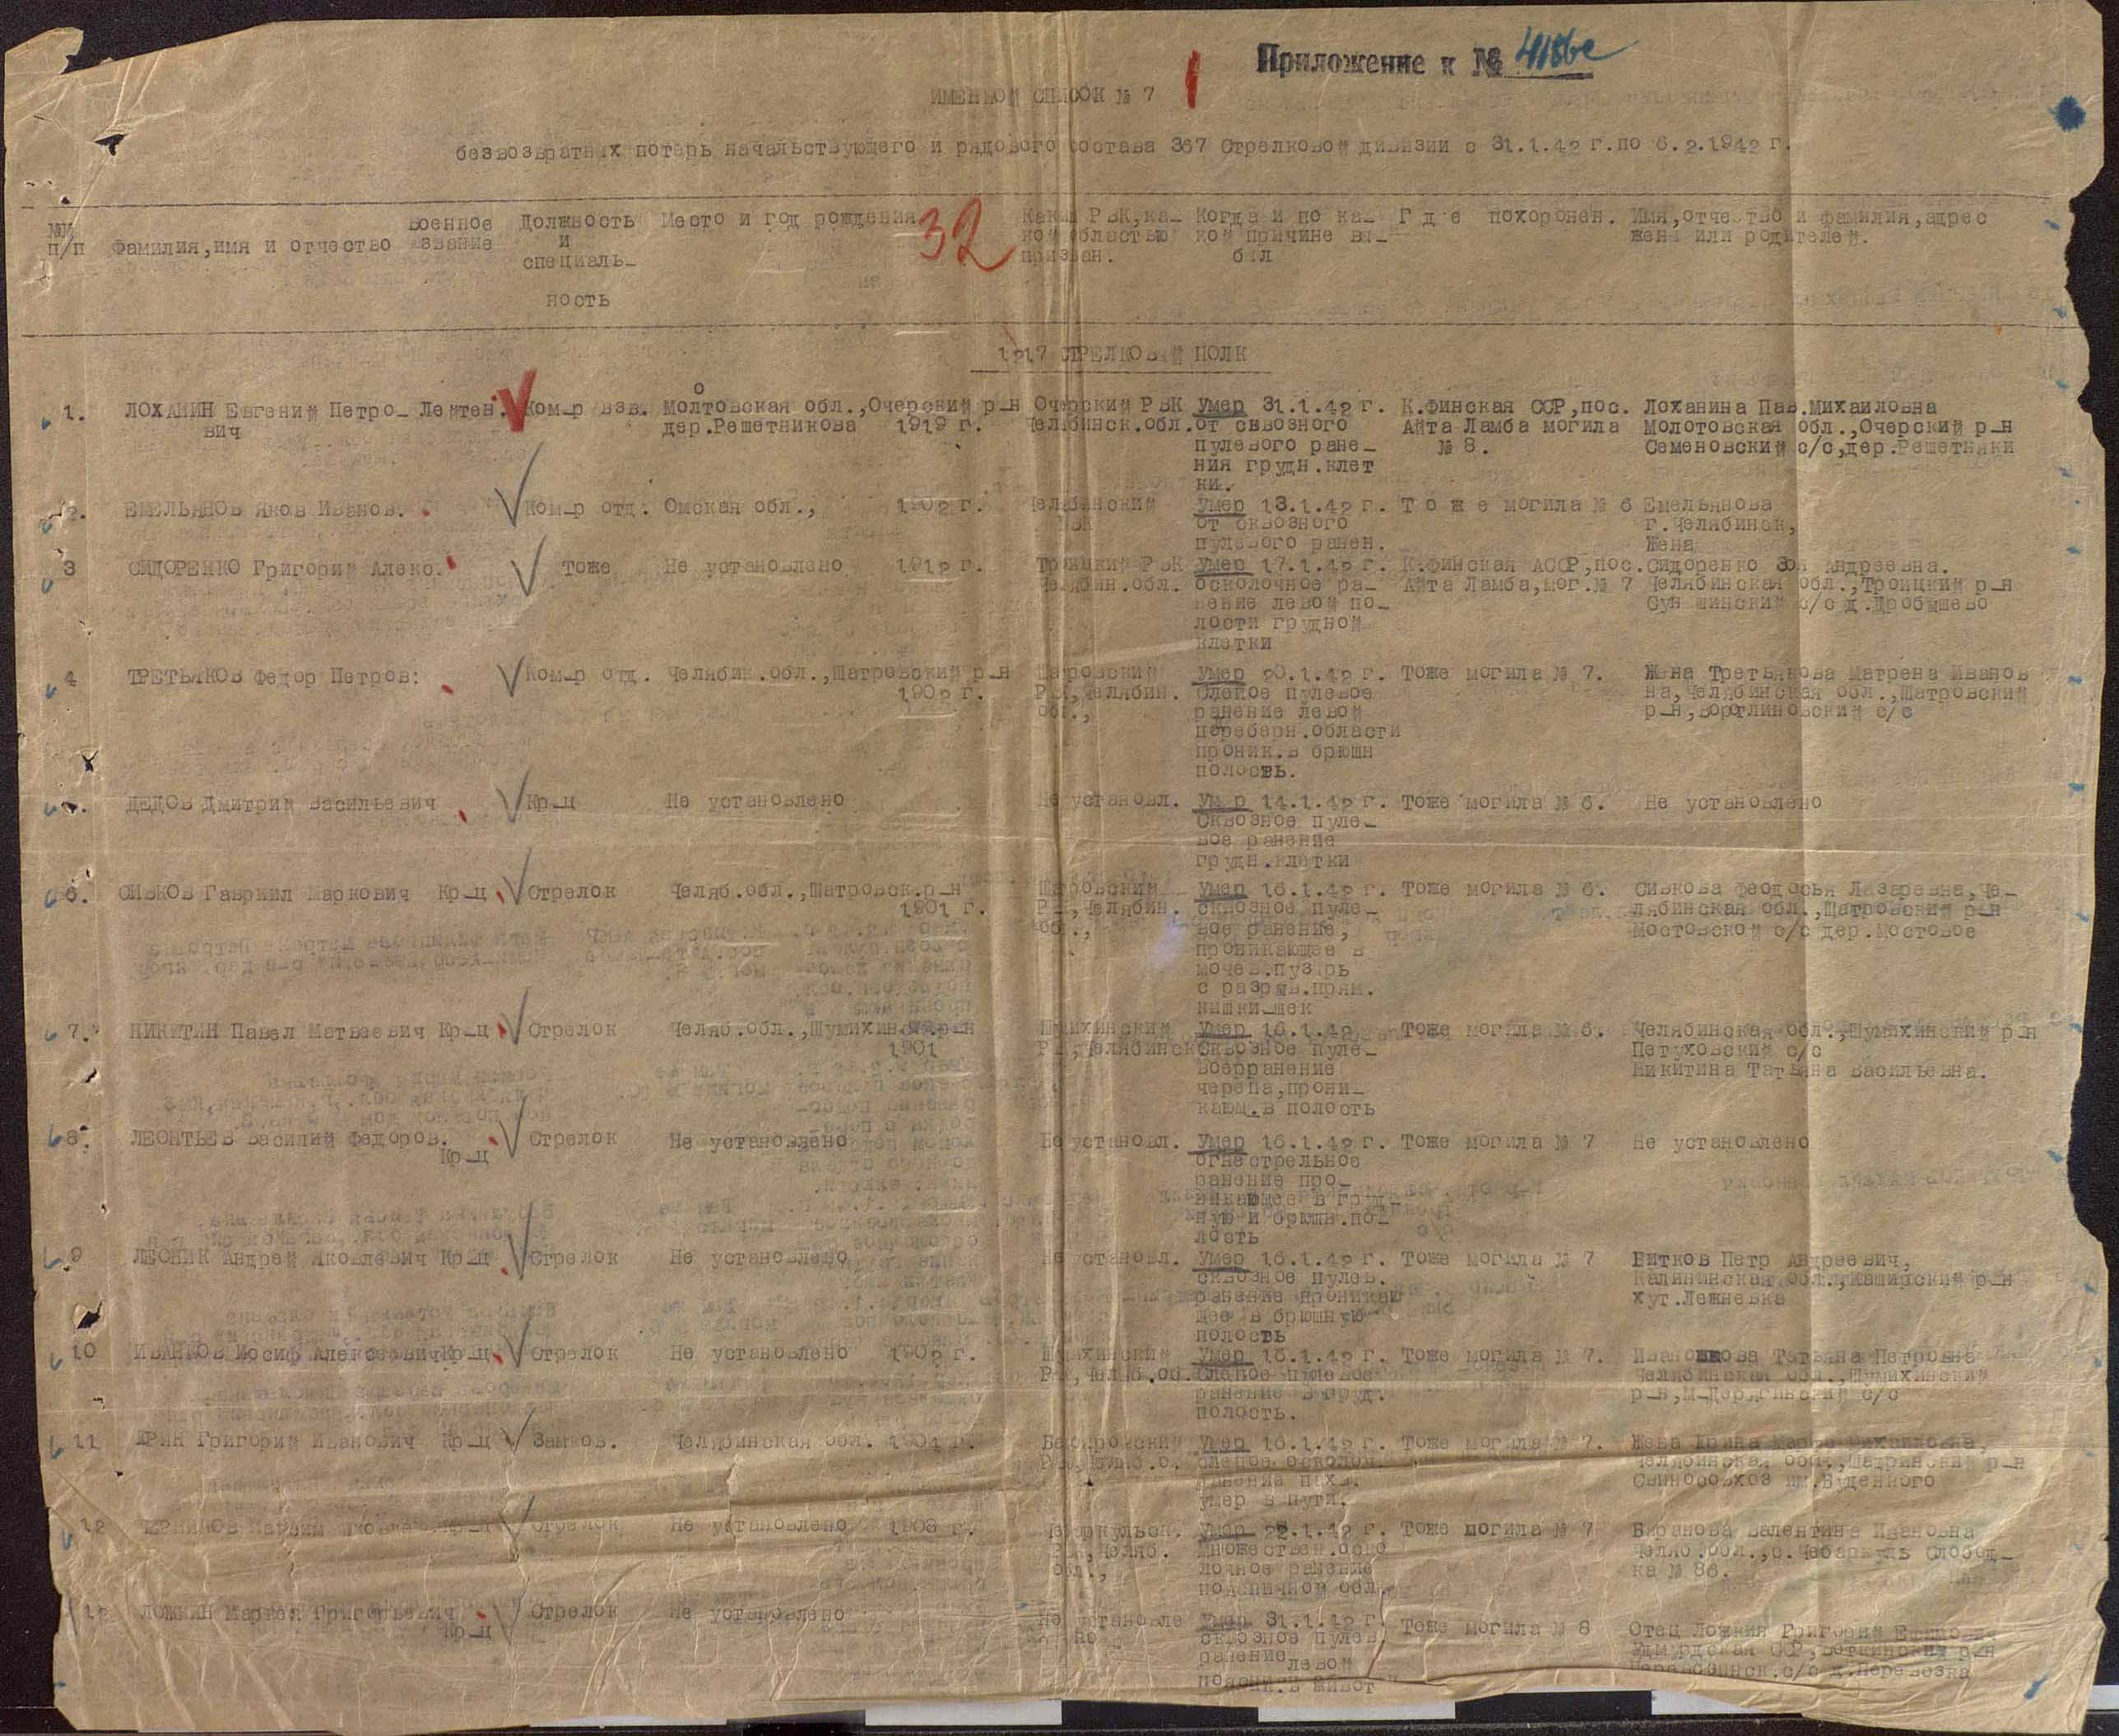 Приложение к №
ИМЕННОЙ СПИСОК № 7
безвозвратных потерь начальствующего и рядового состава 367 Стрелковой дивизии с 31.1.42 г. по 6.2.1942 г.
№№ п/п Фамилия,имя и отчество Военное звание Должность и специаль-ность Место и год рождения Каким РВК,ка-кой областью призван. Когда и по ка-кой причине вы-был Г д е похоронен. Имя,отчество и фамилия,адрес жены или родителей.
32
1217 СТРЕЛКОВЫЙ ПОЛК
1. ЛОХАНИН Евгений Петро- Лейтен. Ком-р взв. Молтовская обл.,Очерский р-н Очерский РВК Умер 31.1.42 г. К.Финская ССР,пос. Лоханина Пав.Михаиловна
вич дер.Решетникова 1919 г. Челябинск.обл. от сквозного Айта Ламба могила Молотовская обл.,Очерский р-н
пулевого ране- № 8. Семеновский с/с,дер.Решетники
ния грудн.клет
ки.
2. ЕМЕЛЬЯНОВ Яков Иванов. Ком-р отд. Омская обл., 1902 г. Челябинский Умер 13.1.42 г. Т о ж е могила № 6 Емельянова
РВК от сквозного г.Челябинск,
пулевого ранен. Жена
3 СИДОРЕНКО Григорий Алекс. Тоже Не установлено 1912 г. Троицкий РВК Умер 17.1.42 г. К.Финская АССР,пос. Сидоренко Зоя Андреевна.
Челябин.обл. осколочное ра- Айта Ламба,мог.№ 7 Челябинская обл.,Троицкий р-н
нение левой по- с/с д.Дробышево
лости грудной
клетки
4 ТРЕТЬЯКОВ Федор Петров: Ком-р отд. Челябин.обл.,Шатровский р-н Шатровский Умер 20.1.42 г. Тоже могила № 7. Жена Третьякова Матрена Иванов
1902 г. РВК,Челябин. Слепое пулевое на,Челябинская обл.,Шатровский
обл., ранение левой р-н, с/с
области
проник.в брюшн
полость.
5. ДЕДОВ Дмитрий Васильевич Кр-ц Не установлено Не установл. Умер 14.1.42 г. Тоже могила № 6. Не установлено
Сквозное пуле-
вое ранение
грудн.клетки
6. СИВКОВ Гавриил Маркович Кр-ц Стрелок Челяб.обл.,Шатровск.р-н Шатровским Умер 16.1.42 г. Тоже могила № 6. Сивкова Феодосья Лазаревна,Че-
1901 г. РВК,Челябин. сквозное пуле- лябинская обл.,Шатровский р-н
обл., вое ранение, Мостовской с/с дер.Мостовое
проникающее в
мочев.пузырь
с разрыв.прям.
кишки-шек
7. НИКИТИН Павел Матвеевич Кр-ц Стрелок Челяб.обл.,Шумихин. р-н Шумихинский Умер 16.1.42 Тоже могила № 6. Челябинская обл.,Шумихинский р-н
1901 РВК,Челябинск Сквозное пуле- Петуховский с/с
воерранение Никитина Татьяна Васильевна.
черепа,прони-
кающ.в полость
8. ЛЕОНТЬЕВ Василий Федоров. Стрелок Не установлено Не установл. Умер 16.1.42 г. Тоже могила № 7 Не установлено
Кр-ц огнестрельное
ранение про-
никающее в груд-
ную и брюшн.по-
лость
9 ЛЕОНИК Андрей Яковлевич Кр-ц Стрелок Не установлено Не установл. Умер 16.1.42 г. Тоже могила № 7 Витков Петр Андреевич,
сквозное пулев. Калининская обл.,Каширский р-н
ранение проникаю хут.Лежневка
щее в брюшную
полость
10 ИВАНКОВ Иосиф Алексеевич Кр-ц Стрелок Не установлено 1902 г. Шумихинский Умер 16.1.42 г. Тоже могила № 7. Татьяна Петровна
РВК,Челяб.об. Слепое пулевое Челябинская обл.,Шумихинский
ранение в груд. р-н, с/с
полость.
11 ЮРИН Григорий Иванович Кр-ц Замков. Челябинская обл. 1904 г. Умер 16.1.42 г. Тоже могила № 7. Жена Юрина Михайловна,
слепое осколоч. Челябинская обл.,Шадринский р-н
ранение пах. Свиносовхоз им.Буденного
умер в пути.
12 Максим Стрелок Не установлено 1903 г. Чебаркульск. Умер 22.1.42 г. Тоже могила № 7 Баранова Валентина Ивановна
РВК,Челяб. множествен.оско Челяб.обл.,с.Чебаркуль Слобод-
обл., лочное ранение ка № 86.
поясничной обл.
ЛОЖКИН Маркел Григорьевич Стрелок Не установлено Не установле Умер 31.1.42 г. Тоже могила № 8 Отец Ложкин Григорий
Кр-ц но сквозное пулев. Удмурдская ССР, р-н
ранение левой с/с д.Перевозка
живот